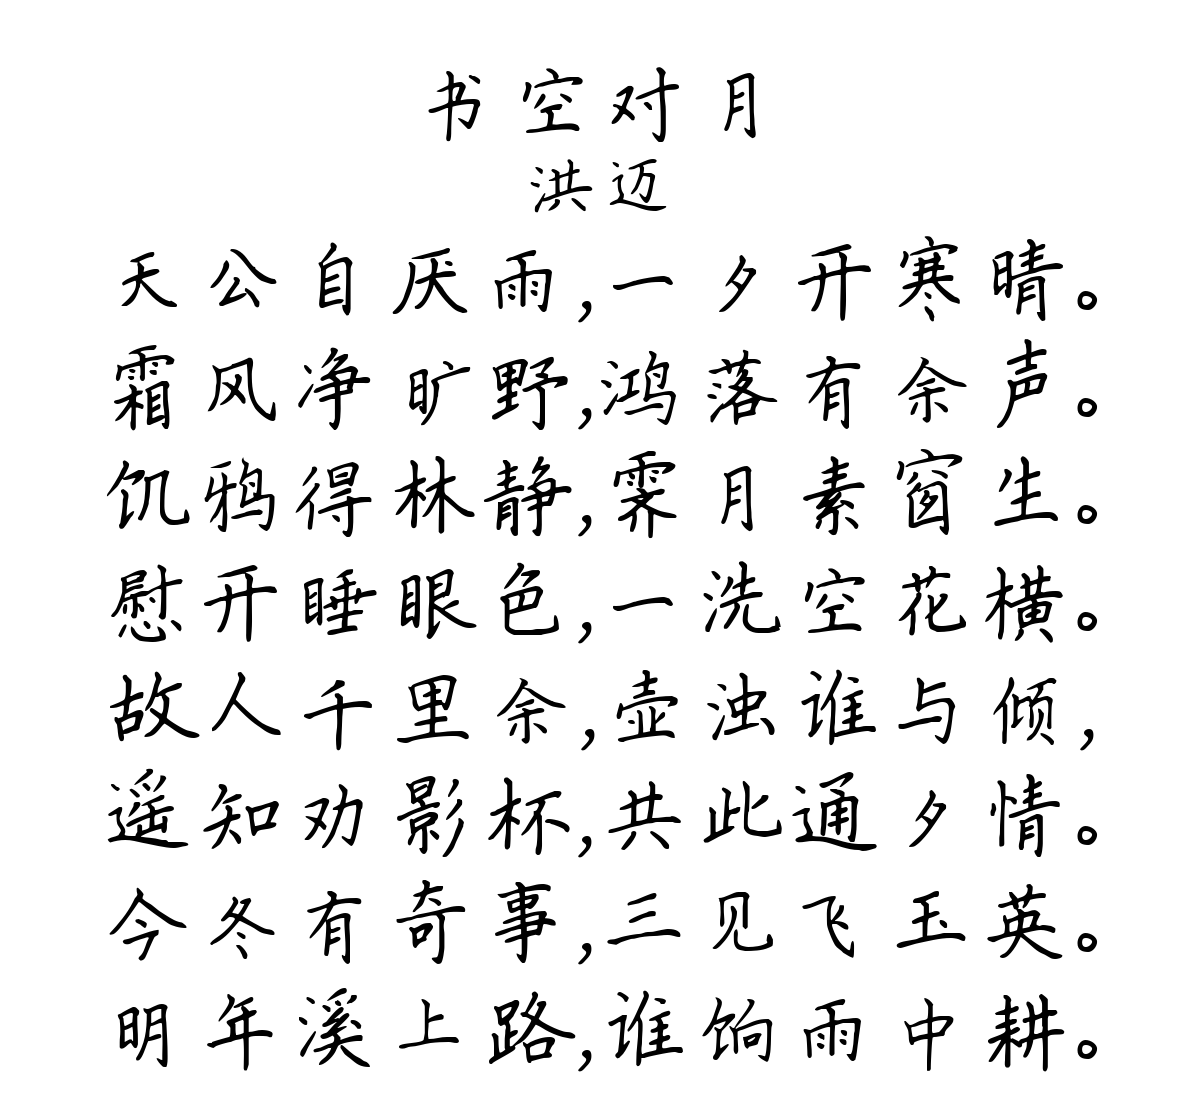 书空对月
洪迈
天公自厌雨,一夕开寒晴。
霜风净旷野,鸿落有余声。
饥鸦得林静,霁月素窗生。
慰开睡眼色,一洗空花横。
故人千里余,壶浊谁与倾,
遥知劝影杯,共此通夕情。
今冬有奇事,三见飞玉英。
明年溪上路,谁饷雨中耕。